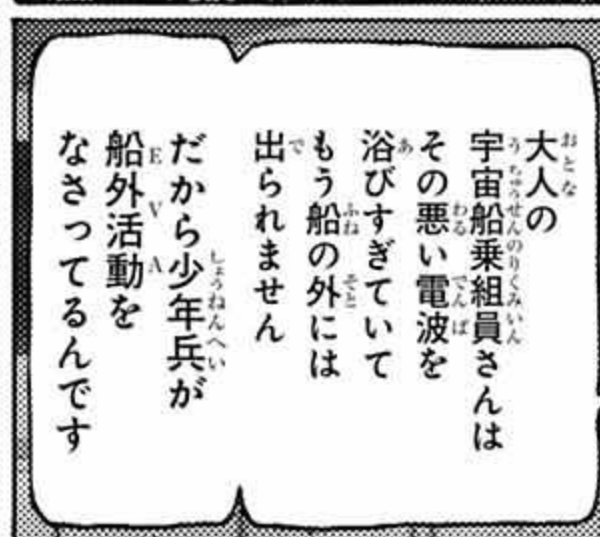 大人の
宇宙船乗組員さんは
その悪い電波を
浴びすぎていて
もう船の外には
出られません
だから少年兵が
船外活動を
なさってるんです